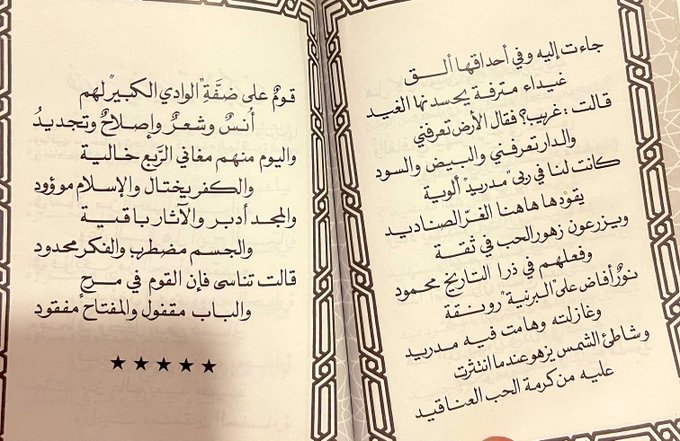 جاءت إليه وفي أحداقها ألـق
غيداء مترفة يحسدنها الغيد
قالت : غريب؟ فقال الأرض تعرفني
والدار تعرفني والبيض والسود
كانت لنا في ربى "مدريد" ألوية
يقودها هاهنا الغرّ الصناديد
ويزرعون زهور الحب في ثقة
وفعلهم في ذرا التاريخ محمود
نورٌ أفاض على "البرنية" رونقة
وغازلته وهامت فيه مدريد
وشاطئ الشمس يزهو عندما انتثرت
عليه من كرمة الحب العناقيد
قومٌ على ضفَّةِ "الوادي الكبير" لهم
أنسٌ وشعرٌ وإصلاحٌ وتجديدُ
واليوم منهم مغاني الرَّبع خالية
والكفر يختال والإسلام موؤود
والمجد أدبر والآثار باقية
والجسم مضطرب والفكر محدود
قالت تناسى فإن القوم في مرحٍ
والباب مقفول والمفتاح مفقود
★★★★★